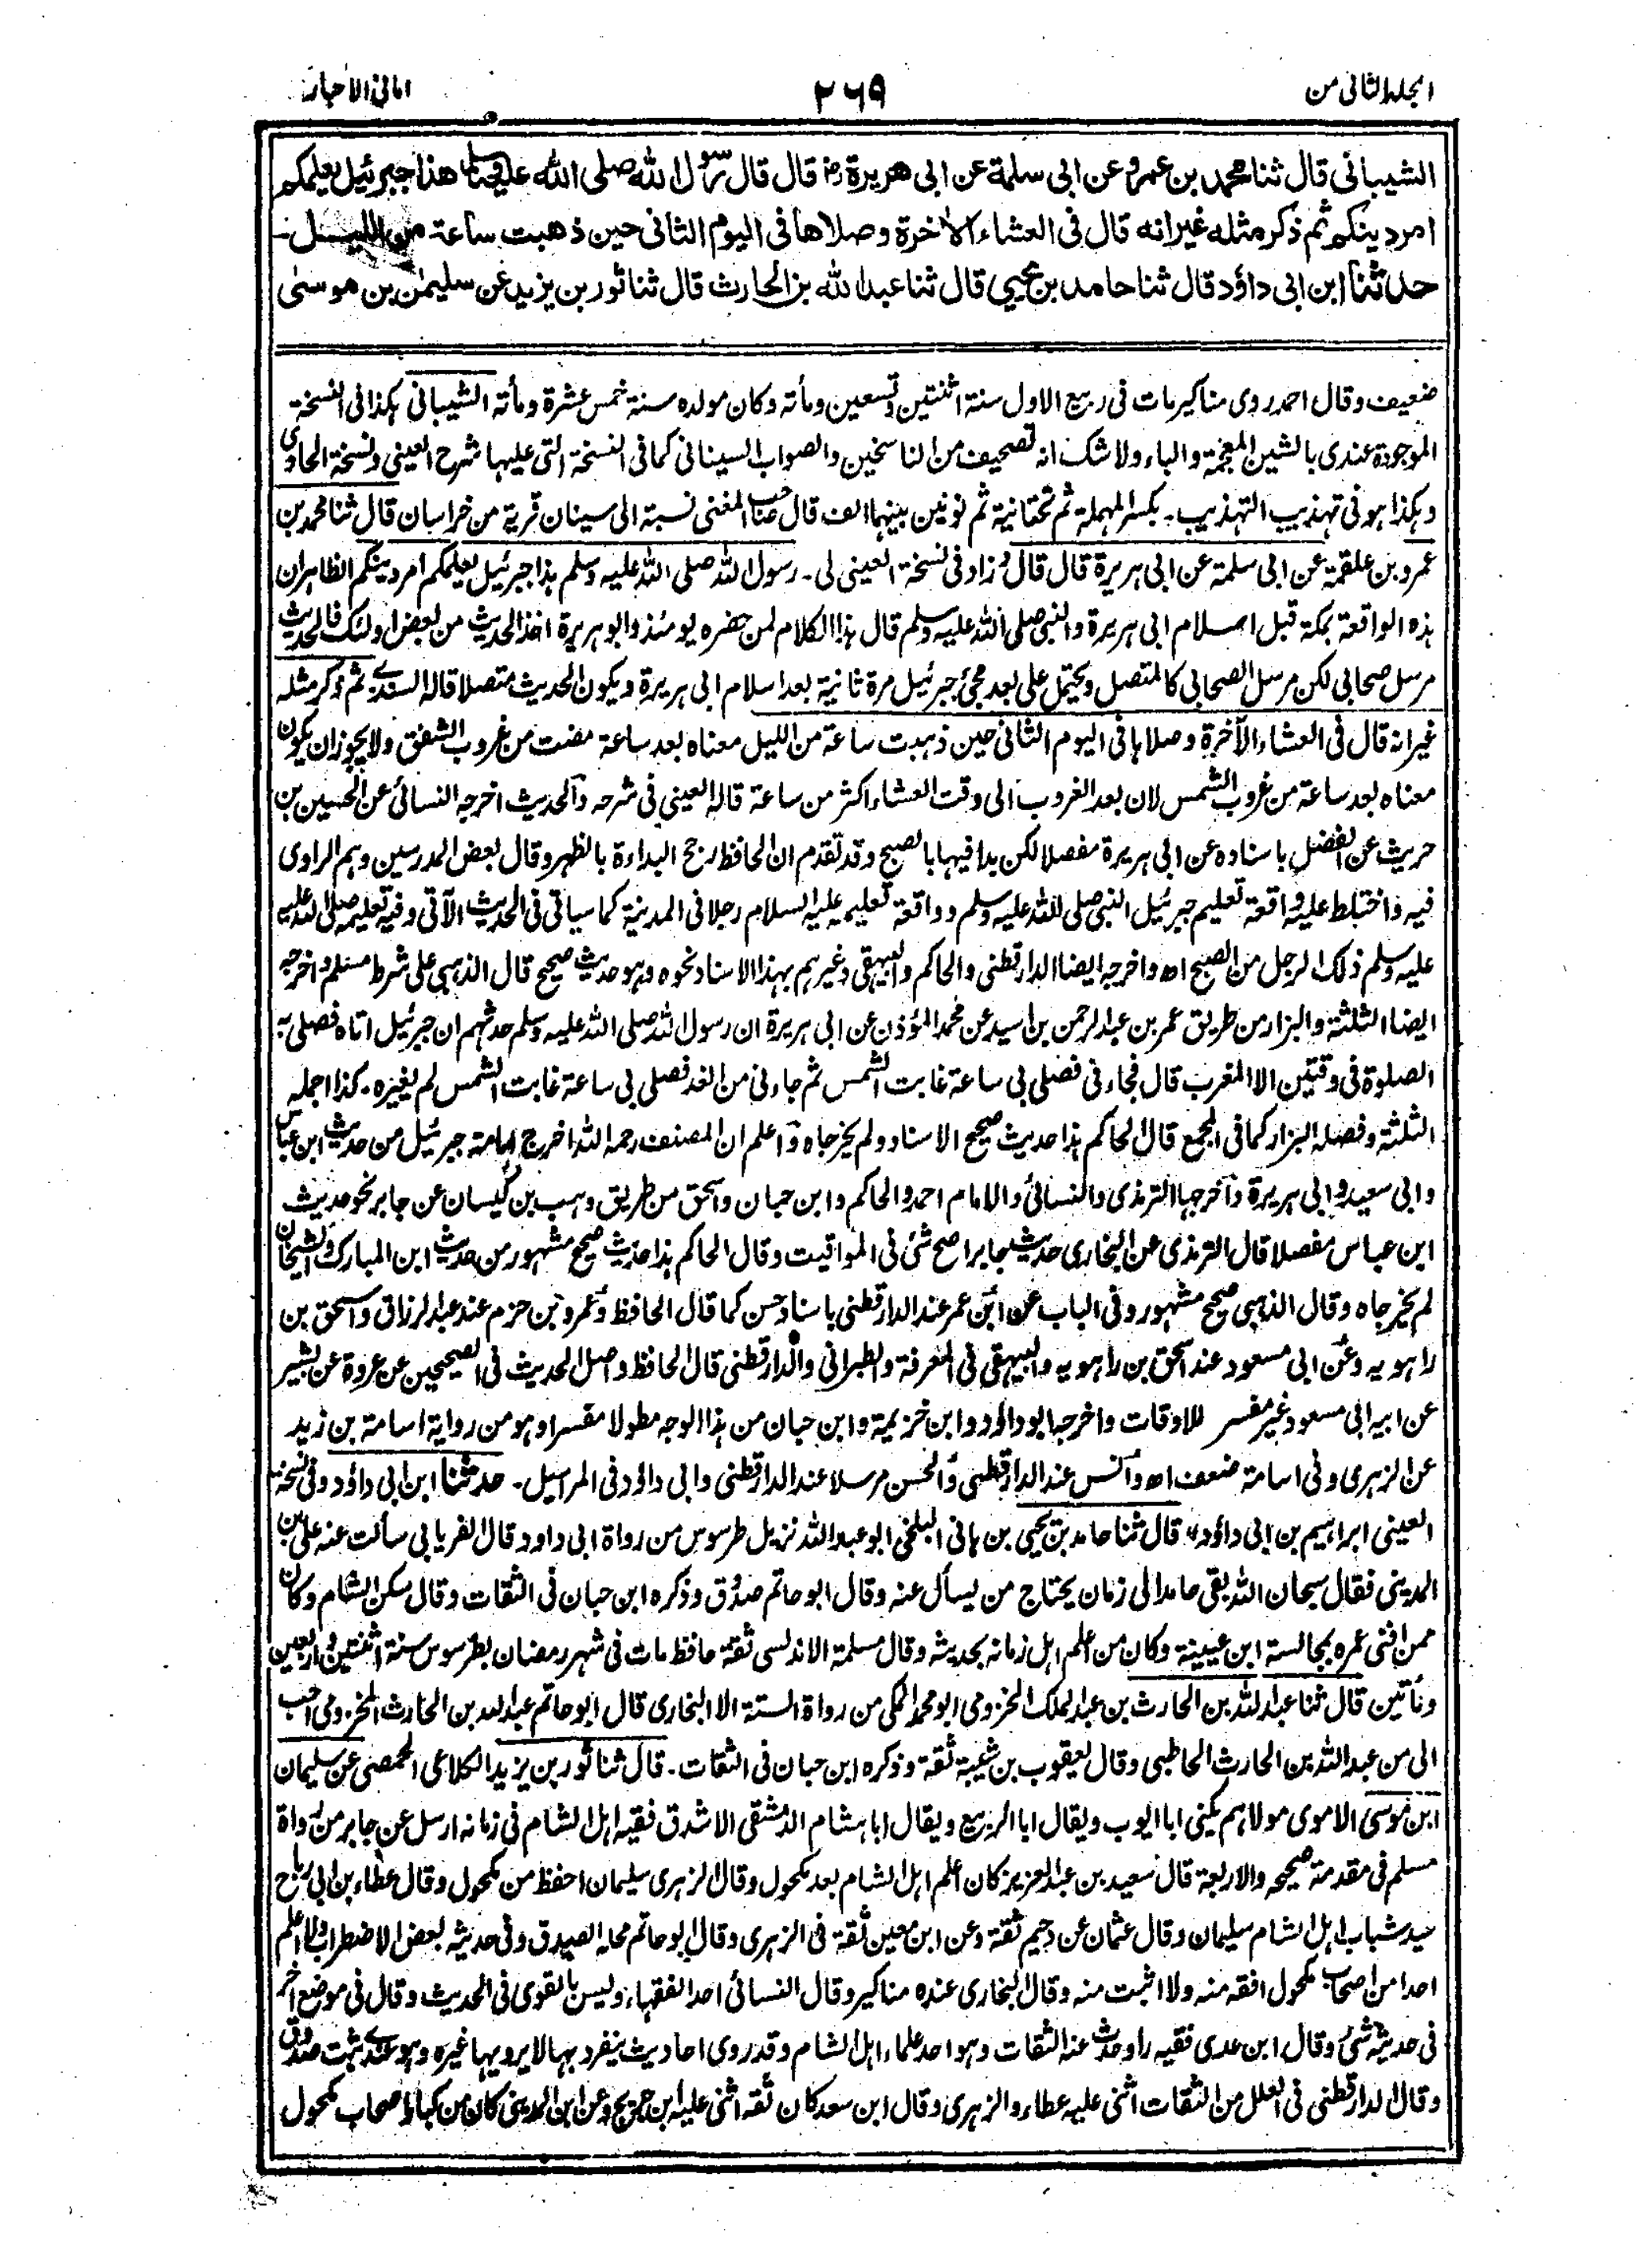 المجلد الثانی من
٢٦٩
امانی الاحبار
الشیبانی قال ثنا محمد بن عمرو عن ابی سلمة عن ابی هریرة رض قال قال رسول الله صلی الله علیه وسلم هذا جبرئیل یعلمکم
امر دینکم ثم ذکر مثله غیر انه قال فی العشاء الاٰخرة وصلاها فی الیوم الثانی حین ذهبت ساعة من اللیل۔
حدثنا ابن ابی داؤد قال ثنا حامد بن یحیی قال ثنا عبد الله بن الحارث قال ثنا ثور بن یزید عن سلیمٰن بن موسیٰ
ضعیف وقال احمد روی مناکیر مات فی ربیع الاول سنة اثنتین وتسعین ومأته وکان مولده سنة خمس عشرة ومأته الشیبانی ہکذا فی النسخة
الموجودة عندی بالشین المعجمة والباء ولا شک انه تصحیف من الناسخین والصواب السینانی کما فی النسخة التی علیها شرح العینی ونسخة الحاوی
وہکذا ہو فی تهذیب التهذیب۔ بکسر المهملة ثم تحتانیة ثم نونین بینهما الف قال صاحب المغنی نسبة الی سینان قریة من خراسان قال ثنا محمد بن
عمرو بن علقمة عن ابی سلمة عن ابی هریرة قال قال وزاد فی نسخة العینی لی۔ رسول الله صلی الله علیه وسلم ہذا جبرئیل یعلمکم امر دینکم الظاهر ان
ہذه الواقعة بمکة قبل اسلام ابی هریرة والنبی صلی الله علیه وسلم قال ہذا الکلام لمن حضره یومئذ وابو هریرة اخذ الحدیث من بعض اولئک فالحدیث
مرسل صحابی لکن مرسل الصحابی کالمتصل ویحتمل علی بعد مجئ جبرئیل مرة ثانیة بعد اسلام ابی هریرة ویکون الحدیث متصلا قاله السندے ثم ذکر مثله
غیر انه قال فی العشاء الآخرة وصلاہا فی الیوم الثانی حین ذہبت ساعة من اللیل معناه بعد ساعة مضت من غروب الشفق ولا یجوز ان یکون
معناه بعد ساعة من غروب الشمس لان بعد الغروب الی وقت العشاء اکثر من ساعة قاله العینی فی شرحه والحدیث اخرجه النسائی عن الحسین بن
حریث عن الفضل باسناده عن ابی هریرة مفصلا لکن بدا فیها بالصبح وقد تقدم ان الحافظ رجح البداءة بالظهر وقال بعض المدرسین وہم الراوی
فیه واختلط علیه واقعة تعلیم جبرئیل النبی صلی الله علیه وسلم وواقعة تعلیمه علیه السلام رجلا فی المدینة کما سیاتی فی الحدیث الآتی وفیه تعلیمه صلی الله علیه
علیه وسلم ذلک الرجل من الصبح اھ واخرجه ایضا الدارقطنی والحاکم والبیهقی وغیرہم بهذا الاسناد نحوه وہو حدیث صحیح قال الذہبی علی شرط مسلم واخرجه
ایضا الثلثة والبزار من طریق عمر بن عبد الرحمن بن اسید عن محمد المؤذن عن ابی هریرة ان رسول الله صلی الله علیه وسلم حدثهم ان جبرئیل اتاه فصلی به
الصلوة فی وقتین الا المغرب قال فجاءنی فصلی بی ساعة غابت الشمس ثم جاءنی من الغد فصلی بی ساعة غابت الشمس لم یغیره۔ کذا اجمله
الثلثة وفصله البزار کما فی المجمع قال الحاکم ہذا حدیث صحیح الاسناد ولم یخرجاه واعلم ان المصنف رحمه الله اخرج امامة جبرئیل من حدیث ابن عباس
وابی سعید وابی هریرة واخرجها الترمذی والنسائی والامام احمد والحاکم وابن حبان واسحق من طریق وہب بن کیسان عن جابر نحو حدیث
ابن عباس مفصلا قال الترمذی عن البخاری حدیث جابر اصح شئ فی المواقیت وقال الحاکم ہذا حدیث صحیح مشهور من حدیث ابن المبارک والشیخان
لم یخرجاه وقال الذہبی صحیح مشهور وفی الباب عن ابن عمر عند الدارقطنی باسناد حسن کما قال الحافظ وعمرو بن حزم عند عبد الرزاق واسحق بن
راہویه وعن ابی مسعود عند اسحق بن راہویه والبیهقی فی المعرفة والطبرانی والدارقطنی قال الحافظ واصل الحدیث فی الصحیحین عن عروة عن بشیر
عن ابیه ابی مسعود غیر مفسر للاوقات واخرجه ابو داؤد وابن خزیمة وابن حبان من ہذا الوجه مطولا مفسرا وہو من روایة اسامة بن زید
عن الزهری وفی اسامة ضعف اھ وانس عند الدارقطنی والحسن مرسلا عند الدارقطنی وابی داؤد فی المراسیل۔ حدثنا ابن ابی داؤد وفی نسخة
العینی ابراہیم بن ابی داؤد، قال ثنا حامد بن یحیی بن ہانی البلخی ابو عبد الله نزیل طرسوس من رواة ابی داود قال الفریابی سألت عنه علی بن
المدینی فقال سبحان الله بقی حامد الی زمان یحتاج من یسأل عنه وقال ابو حاتم صدوق وذکره ابن حبان فی الثقات وقال سکن الشام وکان
ممن افنی عمره بمجالسة ابن عیینة وکان من اعلم اہل زمانه بحدیثه وقال مسلمة الاندلسی ثقة حافظ مات فی شهر رمضان بطرسوس سنة اثنتین واربعین
ومأتین قال ثنا عبد الله بن الحارث بن عبد الملک المخزومی ابو محمد المکی من رواة الستة الا البخاری قال ابو حاتم عبد الله بن الحارث المخزومی احب
الی من عبد الله بن الحارث الحاطبی وقال یعقوب بن شیبة ثقة وذکره ابن حبان فی الثقات۔ قال ثنا ثور بن یزید الکلاعی الحمصی عن سلیمان
ابن موسی الاموی مولاہم یکنی ابا ایوب ویقال ابا الربیع ویقال ابا ہشام الدمشقی الاشدق فقیه اہل الشام فی زمانه ارسل عن جابر من رواة
مسلم فی مقدمة صحیحه والاربعة قال سعید بن عبد العزیز کان اعلم اہل الشام بعد مکحول وقال الزهری سلیمان احفظ من مکحول وقال عطاء بن ابی رباح
سید شباب اہل الشام سلیمان وقال عثمان عن دحیم ثقة وعن ابن معین ثقة فی الزهری وقال ابو حاتم محله الصدق وفی حدیثه بعض الاضطراب ولا اعلم
احدا من اصحاب مکحول افقه منه ولا اثبت منه وقال البخاری عنده مناکیر وقال النسائی احد الفقهاء ولیس بالقوی فی الحدیث وقال فی موضع آخر
فی حدیثه شئ وقال ابن عدی فقیه راو حدث عنه الثقات وہو احد علماء اہل الشام وقد روی احادیث ینفرد بها لا یرویها غیره وہو عندے ثبت صدوق
وقال الدارقطنی فی العلل من الثقات اثنی علیه عطاء والزهری وقال ابن سعد کان ثقة اثنی علیه ابن جریج وعن ابن المدینی کان من کبار اصحاب مکحول